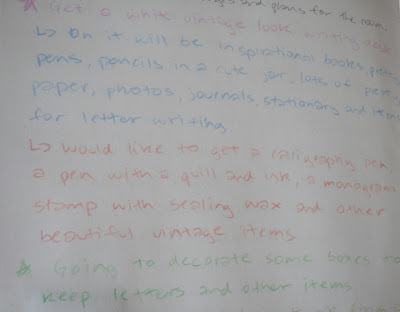 and plans for the room
Get a white vintage look writing desk
↳ On it will be inspirational books, pretty
pens, pencils in a cute jar, lots of pretty
paper, photos, journals, stationary and items
for letter writing
↳ Would like to get a caligraphy pen,
a pen with a quill and ink, a monogram
stamp with sealing wax and other
beautiful vintage items
☆ Going to decorate some boxes to
keep letters and other items